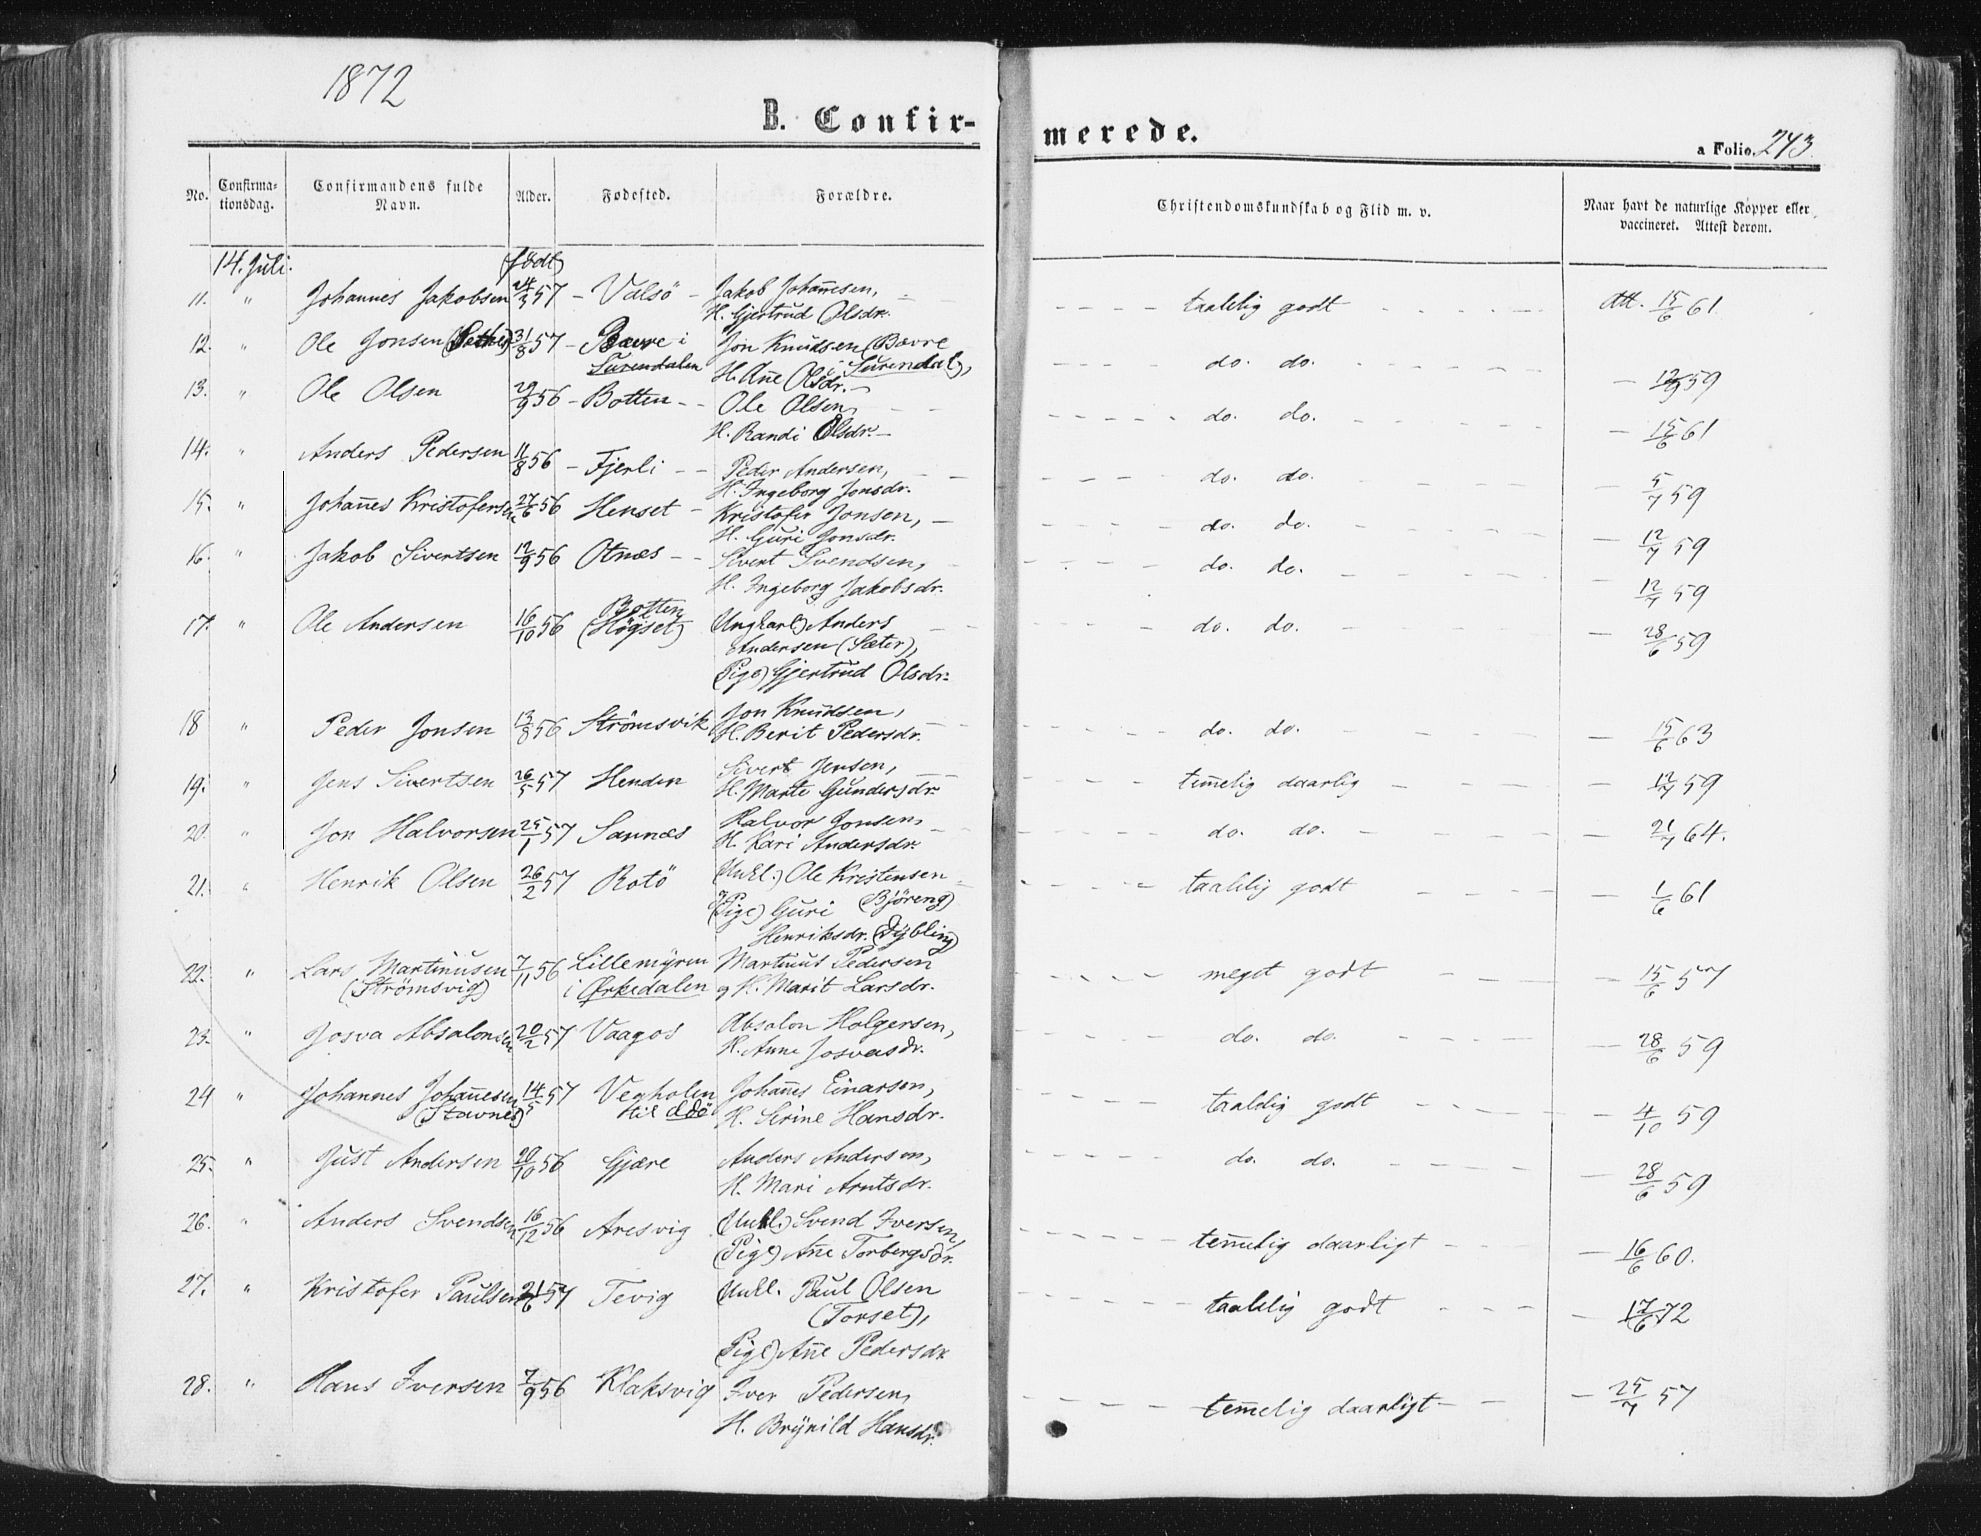 1872
B. Confir-
merede.
a Folio. 243.
No. Confirma-tionsdag. Confirmandens fulde Navn. Alder. Fødested. Forældre. Christendomskundskab og Flid m. v. Naar havt de naturlige Kopper eller vaccineret. Attest derom.
14. Juli. (født)
11. " Johannes Jakobsen 24/3 57 - Valsö - Jakob Johan̄esen, - - - - taalelig godt - - - - Att. 15/6 61
H. Gjertrud Olsdr.
12. " Ole Jonsen 31/8 57 - Bævre i Jon Knudsen (Bævre - - - - do. do. - - - - - 12/9 59
Surendalen i Surendal),
H. An̄e Olsdr. -
13. " Ole Olsen 29/9 56 - Botten - - Ole Olsen, - - - - - - do. do. - - - - - 15/6 61
H. Randi Olsdr. -
14. " Anders Pedersen 11/8 56 - Fjerli - - Peder Andersen, - - - - - do. do. - - - - 5/7 59
H. Ingeborg Jonsdr.
15. " Johan̄es Kristofersen 27/6 56 Henset - Kristofer Jonsen, - - - - - do. do. - - - - 12/7 59
H. Guri Jonsdr.
16. " Jakob Sivertsen 12/9 56 Otnæs - - Sivert Svendsen, - - - - do. do. - - - - 12/7 59
H. Ingeborg Jakobsdr.
17. " Ole Andersen 16/10 56 Botten (Høgset) Ungkarl) Anders - - - - do. do. - - - - 28/6 59
Andersen (Sæter),
(Pige) Gjertrud Olsdr.
18 " Peder Jonsen 13/8 56 Strömsvik Jon Knudsen, - - - - do. do. - - - - 15/6 63
H. Berit Pedersdr.
19. " Jens Sivertsen 26/5 57 Henden Sivert Jensen, - - - - tem̄elig daarlig - - - - 12/7 59
H. Marte Gundersdr.
20. " Jon Halvorsen 25/1 57 Sannæs Halvor Jonsen, - - - - do. do. - - - - 21/7 64.
H. Kari Andersdr.
21. " Henrik Olsen 26/2 57 Rotö (Unkl.) Ole Kristensen - - - - taalelig godt - - - - 1/6 61
(Björeng)
(Pige) Guri
Henriksdr. (Dybling)
22. " Lars Martinusen 7/11 56 Lillemyren Martinus Pedersen - - - - meget godt - - - 15/6 57
(Strömsvig) i Ørkedalen og H. Marit Larsdr.
23. " Josva Absalonsen 20/2 57 Vaagos Absalon Holgersen, - - - do. do. - - - - 28/6 59
H. Anne Josvasdr.
24 " Johannes Johan̄esen 14/5 57 Vegholen Johan̄es Einarsen, - - - - taalelig godt - - - - 4/10 59
(Stavnes) til H. Serine Hansdr.
25. " Just Andersen 20/10 56 Gjære Anders Andersen, - - - - do. do. - - - - 28/6 59
H. Mari Arntsdr.
26. " Anders Svendsen 16/12 56 Aresvig (Unkl.) Svend Iversen, - - - - tem̄elig daarligt - - - 16/6 60.
(Pige) An̄e Torbergsdr.
27. " Kristofer Paulsen 21/6 57 Tevig Unkl. Paul Olsen - - - - taalelig godt - - - - 17/6 72
(Torset),
(Pige) An̄e Pedersdr.
28. " Hans Iversen 7/9 56 Klaksvig Iver Pedersen, - - - - tem̄elig daarligt - - - 25/7 57
H. Brynild Hansdr.